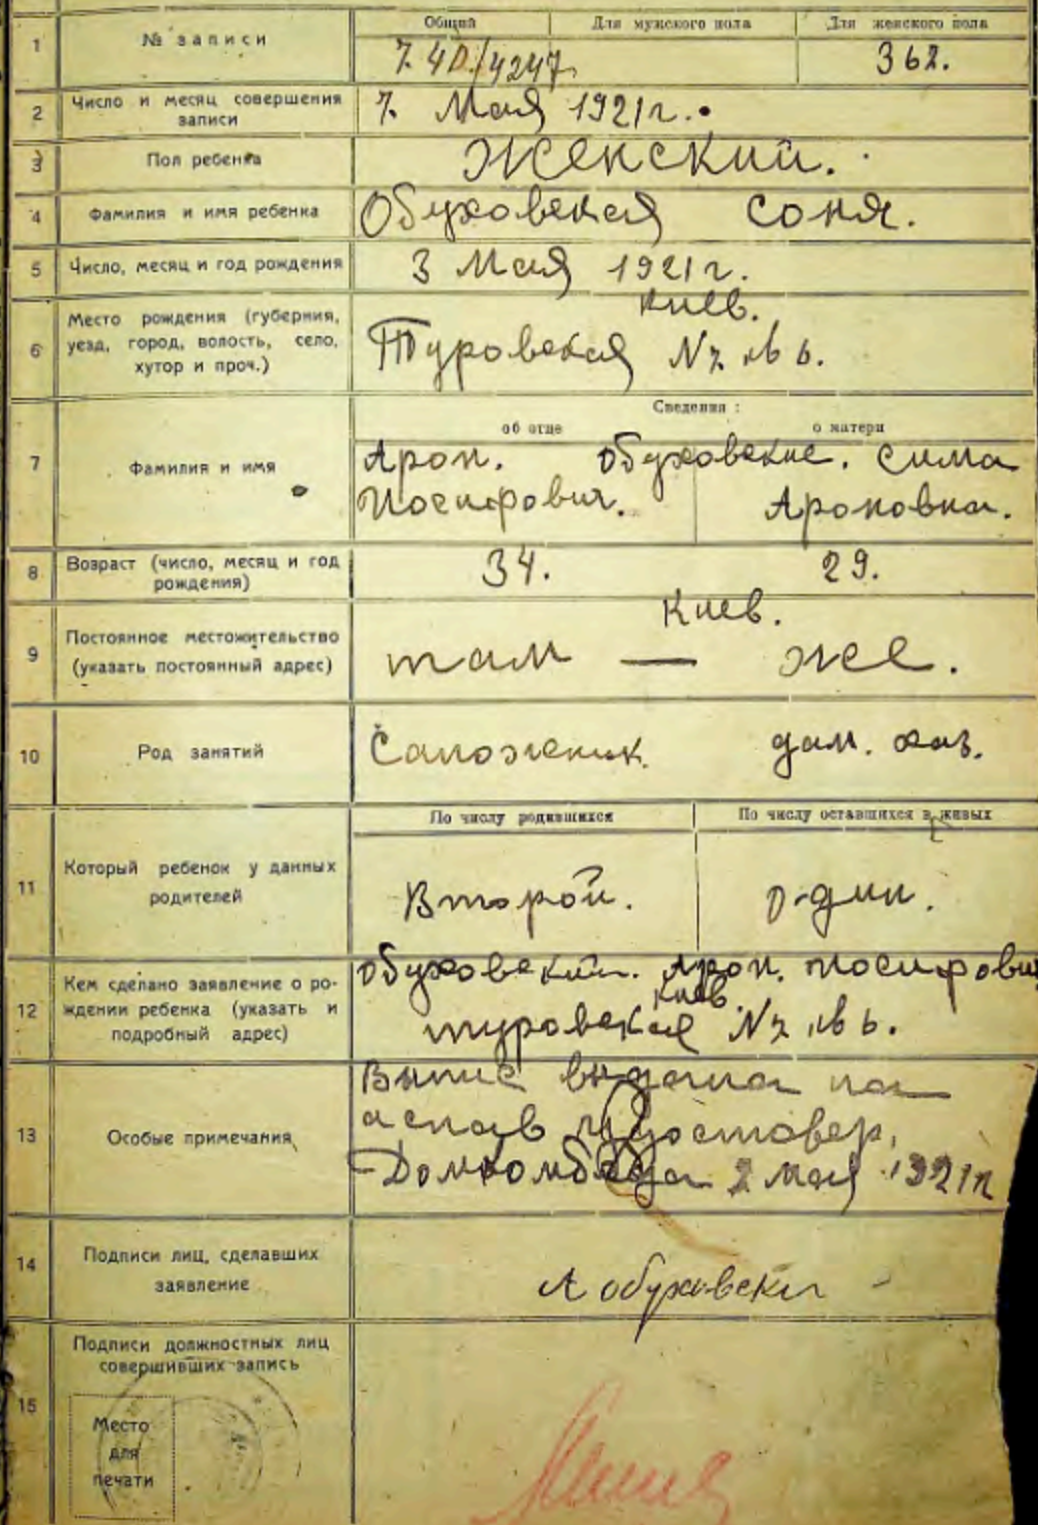 Общий Для мужского пола Для женского пола
1 № записи 7. 40/4247 362.
2 Число и месяц совершения записи 7. Мая 1921г.
3 Пол ребенка Женский.
4 Фамилия и имя ребенка Обуховская Соня.
5 Число, месяц и год рождения 3 Мая 1921г.
Киев.
6 Место рождения (губерния,
уезд, город, волость, село,
хутор и проч.)
Туровская №
Сведения:
об отце о матери
7 Фамилия и имя
Арон. Обуховские. Сима
Иосифович. Ароновна.
8 Возраст (число, месяц и год
рождения)
34. 29.
Киев.
9 Постоянное местожительство
(указать постоянный адрес)
там — же.
10 Род занятий Сапожник. дом. хоз.
По числу родившихся По числу оставшихся в живых
11 Который ребенок у данных
родителей
Второй. один.
12 Кем сделано заявление о ро-
ждении ребенка (указать и
подробный адрес)
Обуховский. Арон. Иосифович
Киев.
Туровская №
13 Особые примечания
Выпис выдана на
удостовер.
Домкомбеда 2 мая 1921г
14 Подписи лиц, сделавших
заявление
А Обуховски
15 Подписи должностных лиц
совершивших запись
Место
для
печати